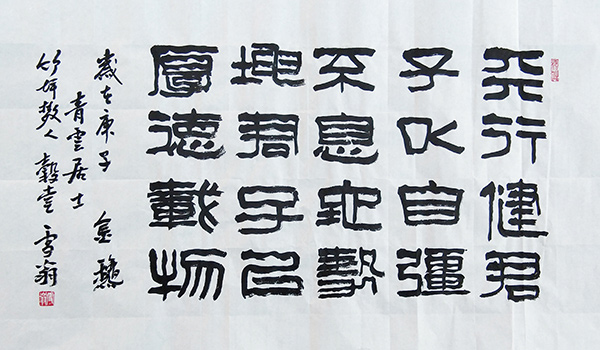 天行健君
子以自彊
不息地勢
坤君子以
厚德載物
歲在庚子 金
青雲居士
竹坪散人 雪翁